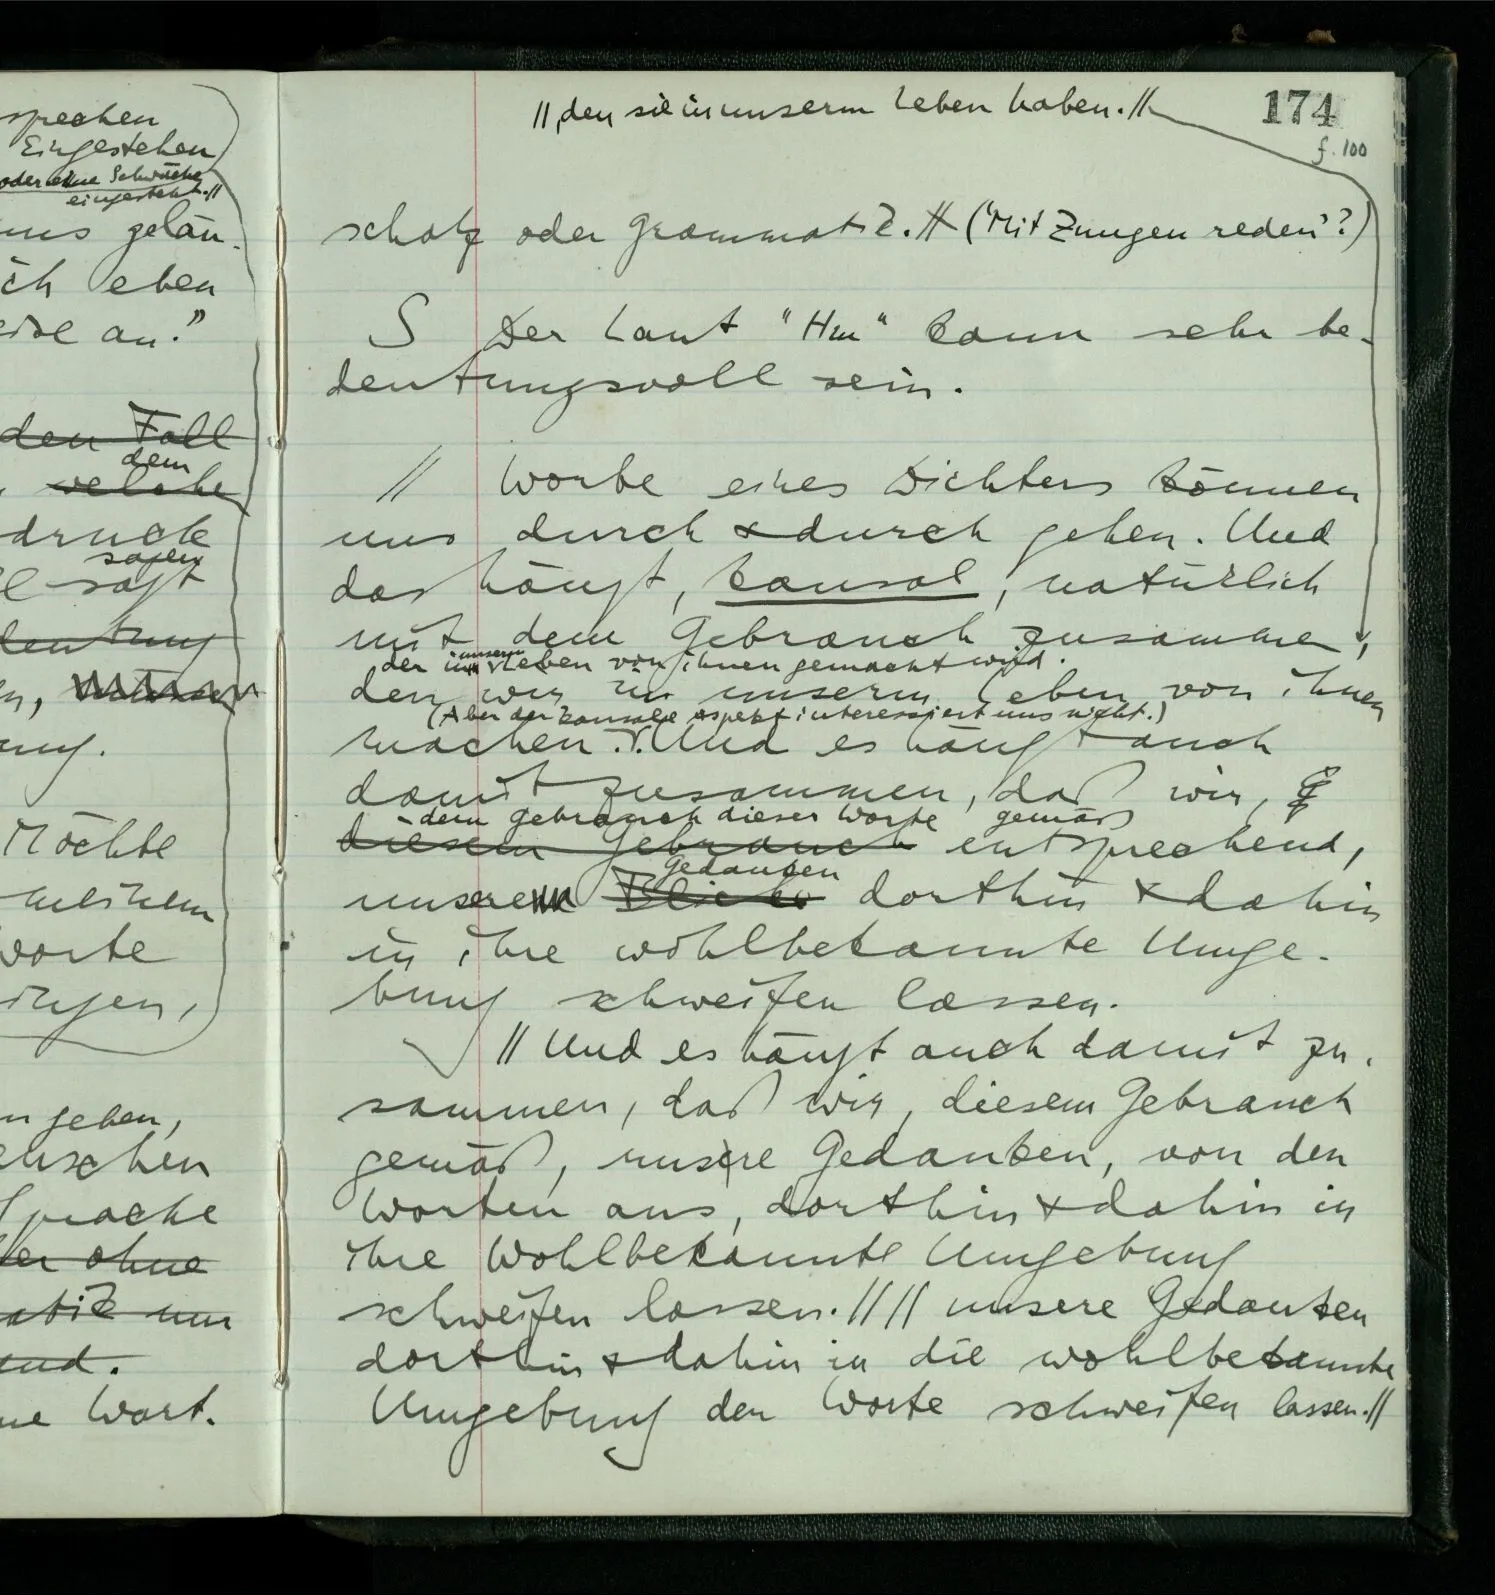 sprechen
Eingestehen
oder eine Schwäche
eingesteht.//
uns geläu-
ich eben
an."
den Fall
dem
welche
drucke
sagen
sagt
deutung
ung.
Möchte
meinem
Worte
ingen,
geben,
enschen
Sprache
der ohne
atik nur
end.
ne Wort.
//, den sie in unserm Leben haben.//
174
f. 100
schatz oder Grammatik.// ("Mit Zungen reden"?)
S Der Laut "Hm" kann sehr be-
deutungsvoll sein.
// Worte eines Dichters können
uns durch & durch gehen. Und
das hängt, kausal, natürlich
mit dem Gebrauch zusammen,
der im unserm Leben von ihnen gemacht wird.
den wir in unserm Leben von ihnen
(Aber der kausale Aspekt interessiert uns nicht.)
machen. Und es hängt auch
damit zusammen, daß wir,
dem Gebrauch dieser Worte gemäß
diesem Gebrauch entsprechend,
Gedanken
unsere Blicke dorthin & dahin
in ihre wohlbekannte Umge-
bung schweifen lassen.
// Und es hängt auch damit zu-
sammen, daß wir, diesem Gebrauch
gemäß, unsere Gedanken, von den
Worten aus, dorthin & dahin in
ihre Wohlbekannte Umgebung
schweifen lassen.// // unsere Gedanken
dorthin & dahin in die wohlbekannte
Umgebung der Worte schweifen lassen.//